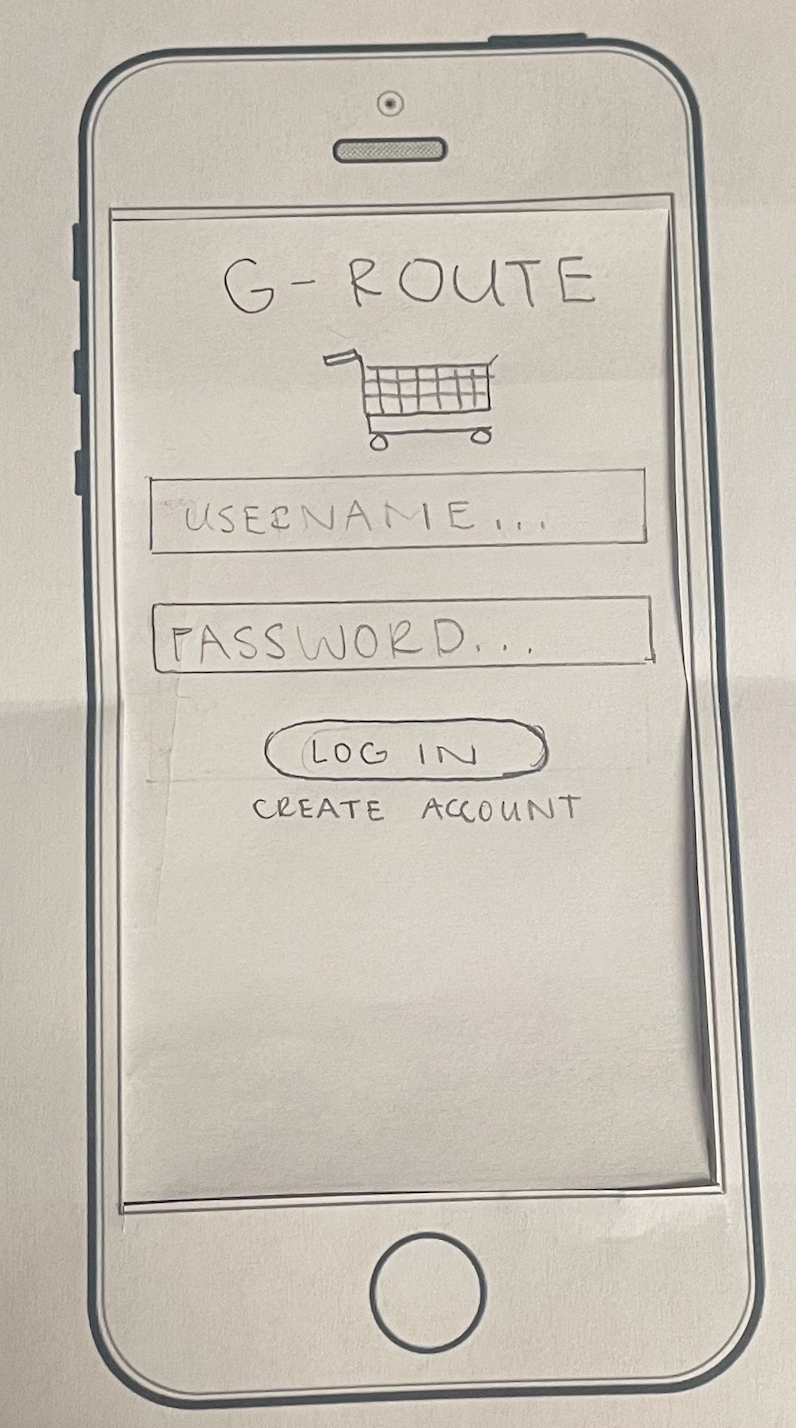 G-ROUTE
USERNAME...
PASSWORD...
LOG IN
CREATE ACCOUNT